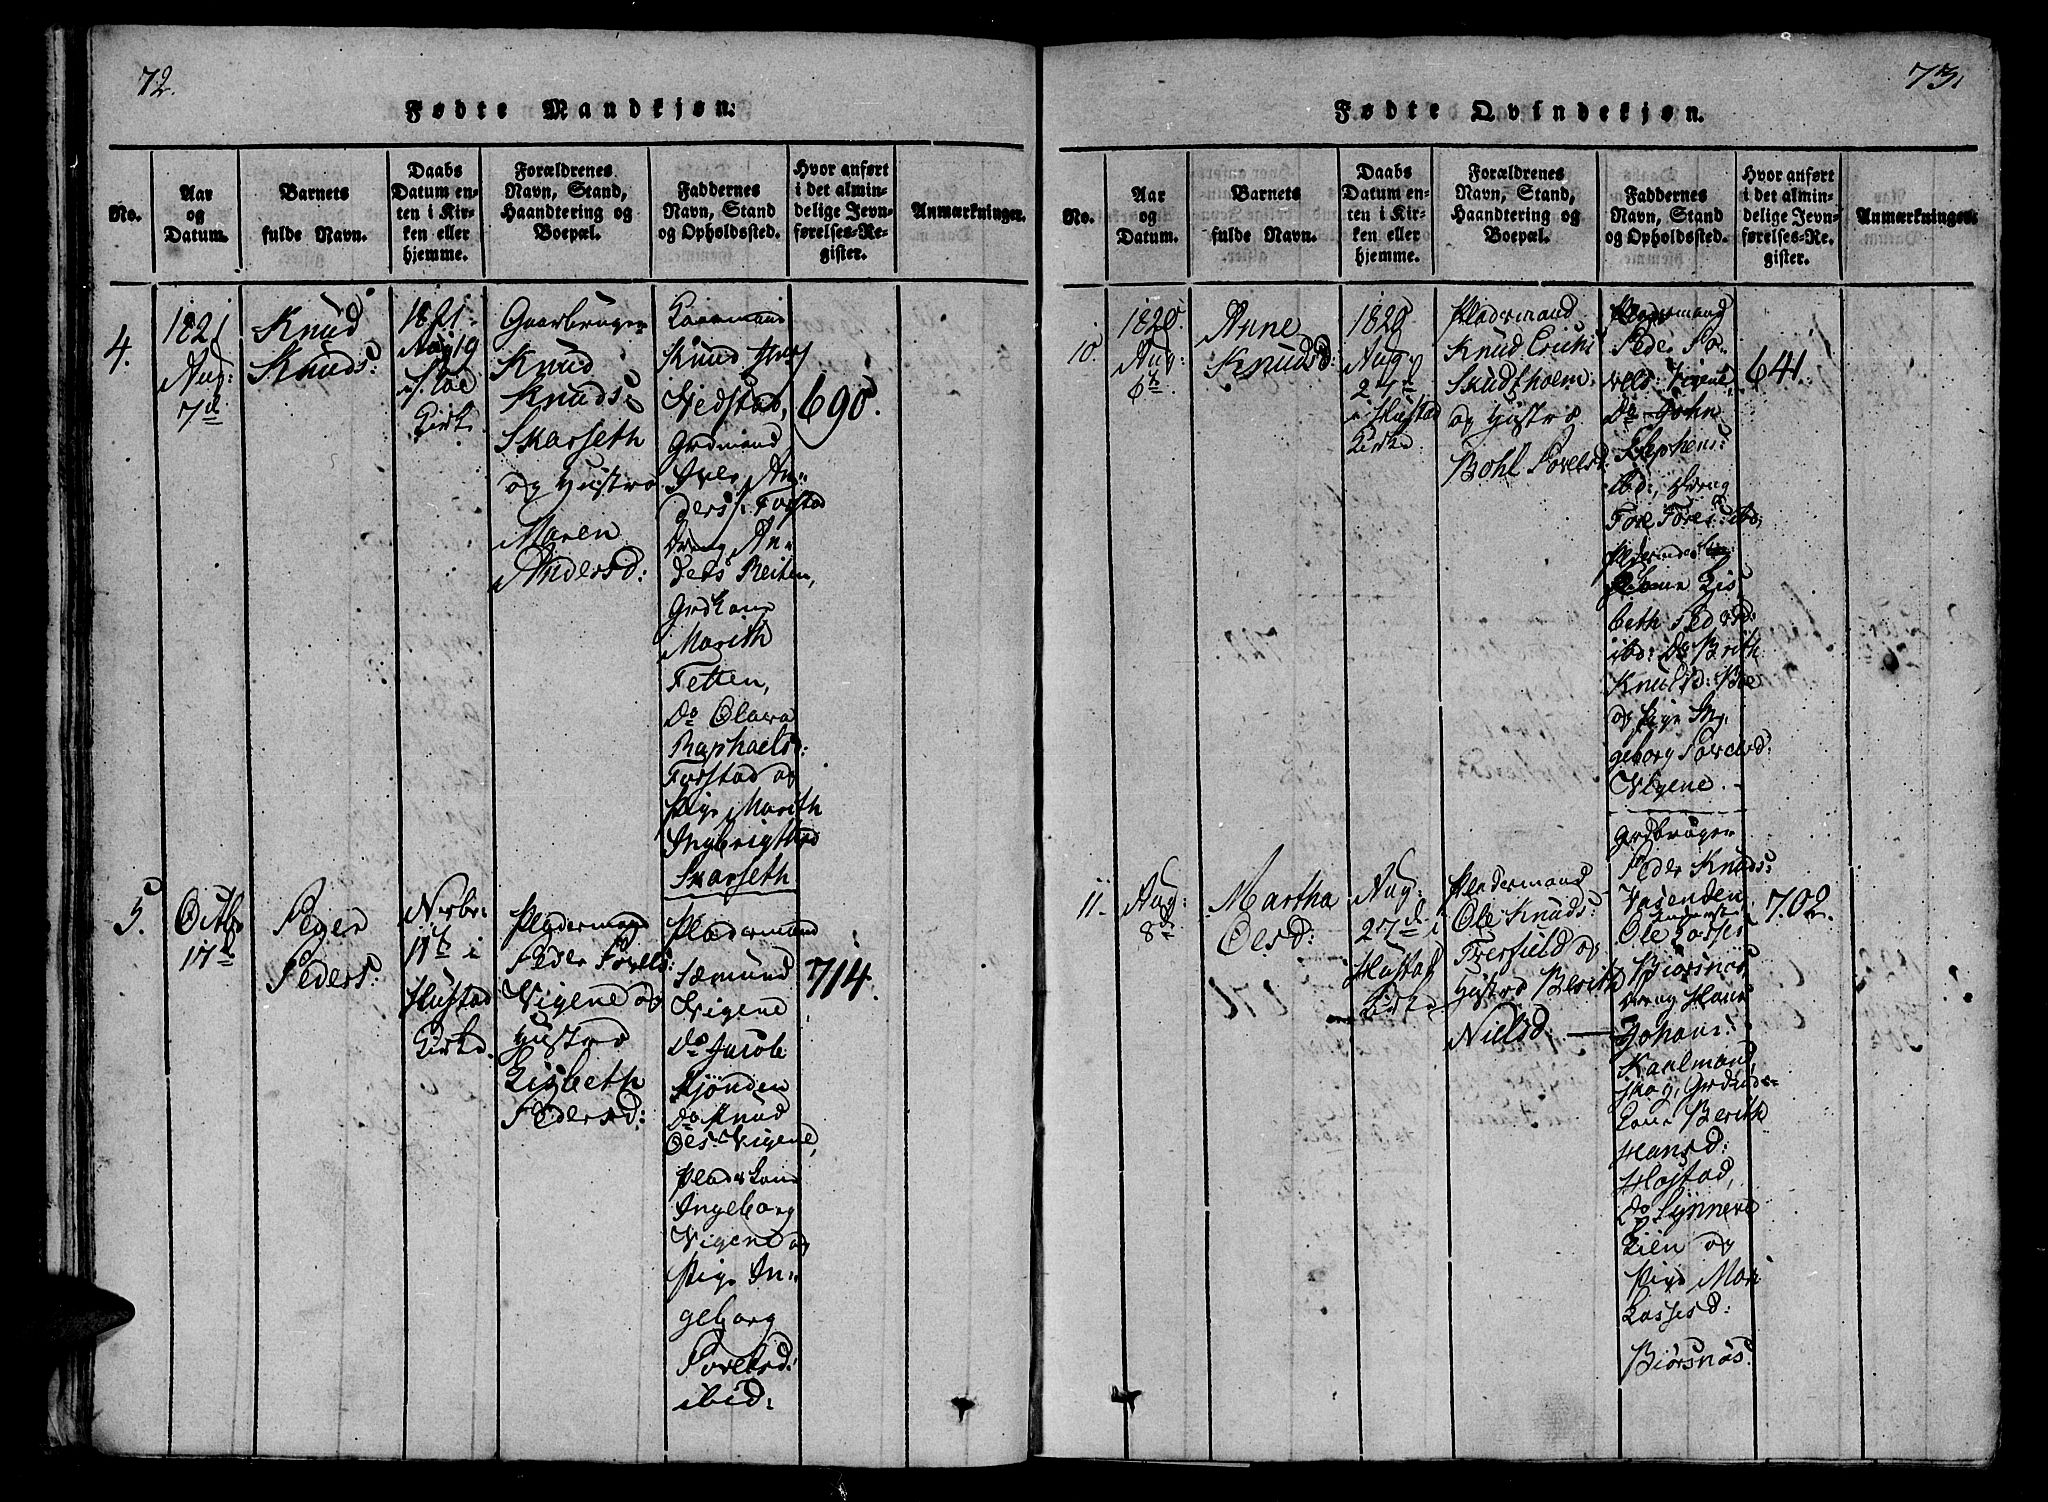 72.
Fødte Mandkjøn.
No.
Aar
og
Datum.
Barnets
fulde Navn.
Daabs
Datum en-
ten i Kir-
ken eller
hjemme.
Forældrenes
Navn, Stand,
Haandtering og
Boepæl.
Faddernes
Navn, Stand
og Opholdssted.
Hvor anført
i det almin-
delige Jevn-
førelses-Re-
gister.
Anmærkninger.
4.
1821
Aug:
7d
Knud
Knuds:
1821.
Aug 19
Kirk
Gaarbruger
Knud
Knuds:
Skarseth
og Hustro
Maren
Andersd:
Knud
Grdmand
Iver An-
ders: Farstad
Dreng An-
ders Reiten,
Grdkone
Marith
Tetten,
Do Olava
Raphaelsd:
Farstad og
Pige Marith
Ingbrigthsd
Skarseth
690.
5.
Octbr
17d
Peder
Peders:
Novbr:
11t i
Hustad
Kirke.
Pladsmand
Peder Povels:
Vigene og
Hustro
Lisbeth
Pedersd:
Pladsmand
Sæmund
Vigene
Do Jacob
Do Knud
Oles: Vigene,
Pladskone
Ingeborg
Vigene og
Pige In-
geborg
Povelsd:
ibid:
714.
73.
Fødte Qvindekjøn.
No.
Aar
og
Datum.
Barnets
fulde Navn.
Daabs
Datum en-
ten i Kir-
ken eller
hjemme.
Forældrenes
Navn, Stand,
Haandtering og
Boepæl.
Faddernes
Navn, Stand
og Opholdssted.
Hvor anført
i det almin-
delige Jevn-
førelses-Re-
gister.
Anmærkninger.
10.
1820
Aug:
6t
Anne
Knudsd:
1820
Aug:
27d
i Hustad
Kirke
Pladsmand
Knud Erichs
Skudtholm
og Hustro
Bohl Povelsd:
Pladsmand
Peder Po-
vels: Vigene,
Do John
Stephens:
ibd:, Dreng
Tore Tores: ibd:
Kone Lis-
beth Pedersd:
ibd: Do Brith
Knudsd: Boe
og Pige In-
geborg Povelsd:
Vigene.
641.
11.
Aug:
8d
Martha
Olesd:
Aug:
27d i
Hustad
Kirke
Pladsmand
Ole Knuds:
og
Hustro Berith
Nielsd:
Grdbruger
Peder Knuds:
Vasenden
Ole Lasses
Biørsnøs
Dreng Hans
Johans:
Berith
Hansd:
Hostad,
Do Synneve
Lien og
Pige Mari
Lassesd:
Biørsnøs
702.